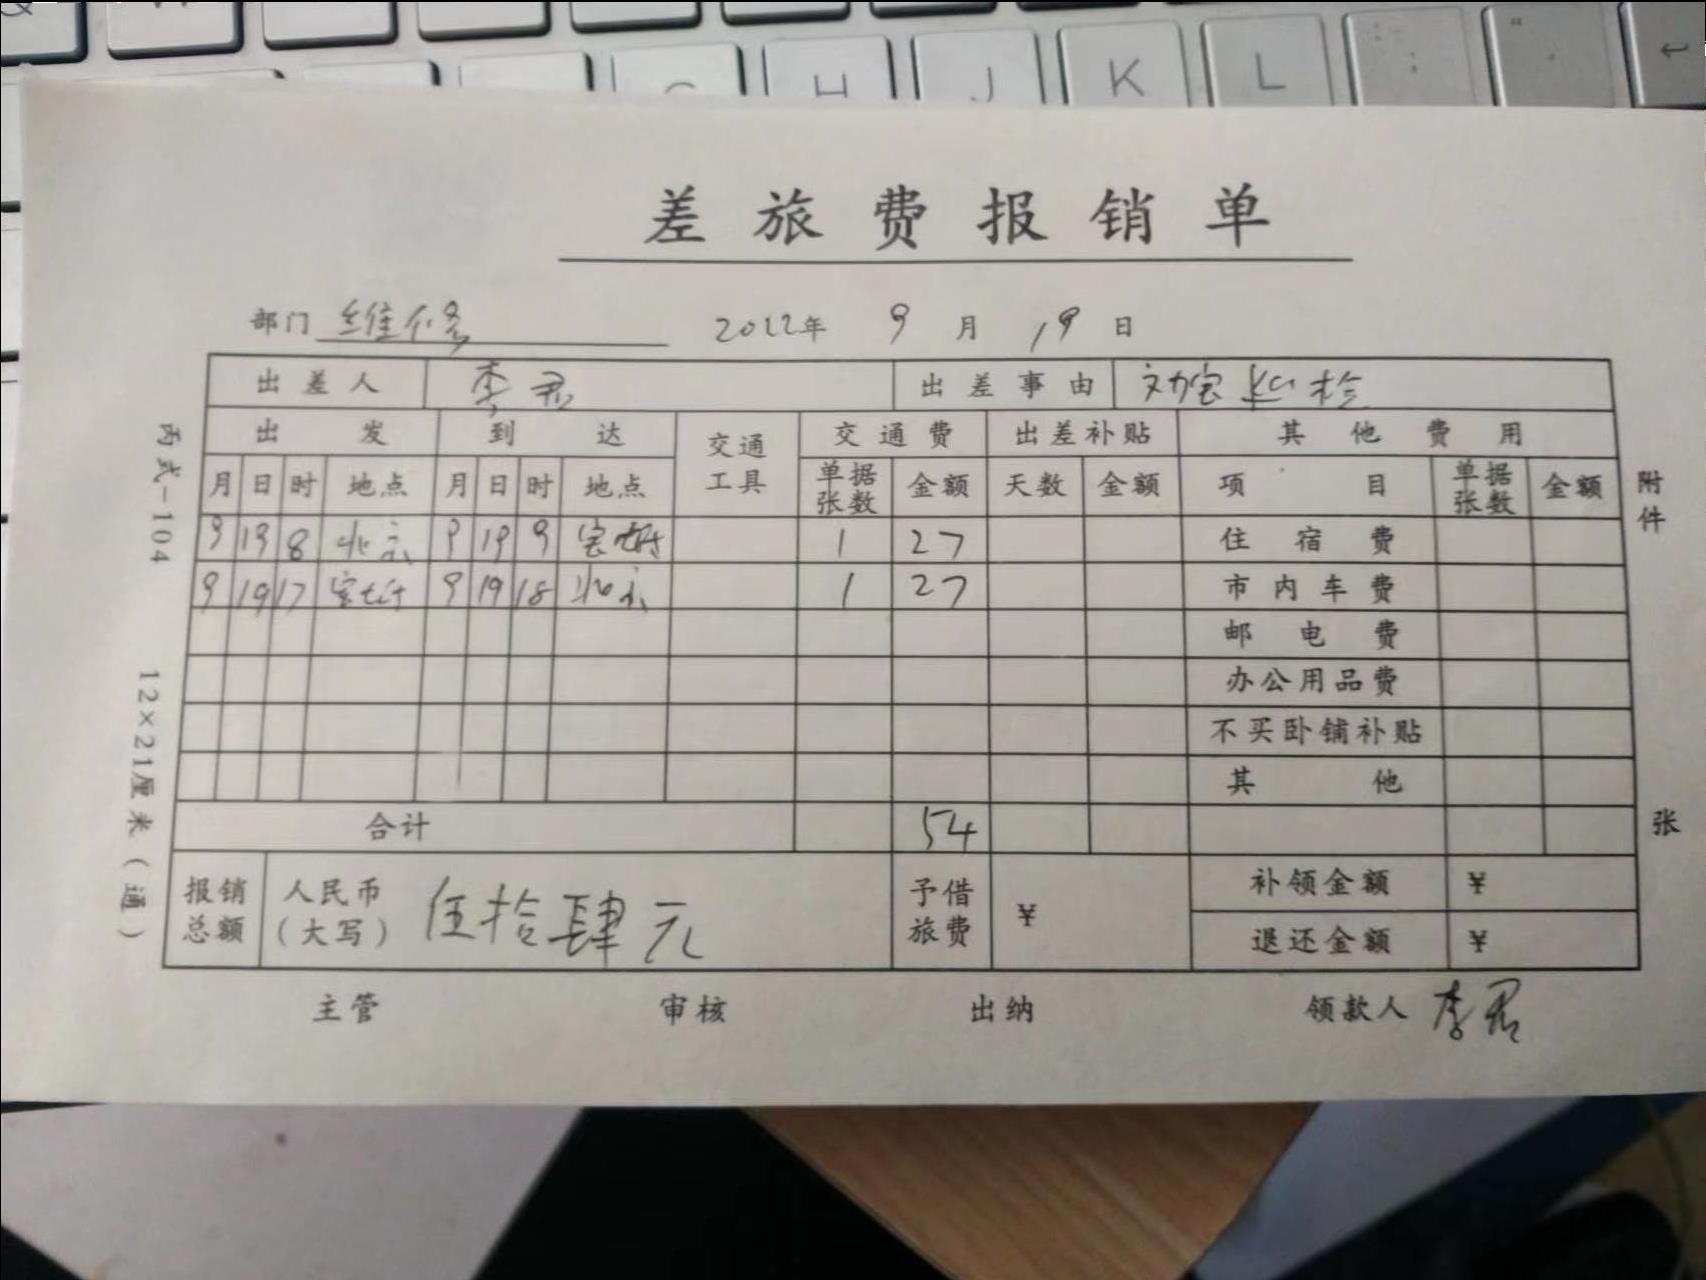 H J K L
差旅费报销单
部门 维修 2022年 9月 19日
出差人 李君 出差事由
出发 到达 交通工具 交通费 出差补贴 其他费用
月 日 时 地点 月 日 时 地点 单据张数 金额 天数 金额 项目 单据张数 金额
9 19 8 北京 9 19 9 宝坻 1 27 住宿费
9 19 17 宝坻 9 19 18 北京 1 27 市内车费
邮电费
办公用品费
不买卧铺补贴
其他
合计 54
报销总额 人民币(大写) 伍拾肆元 予借旅费 ¥ 补领金额 ¥
退还金额 ¥
主管 审核 出纳 领款人 李君
丙式-104 12×21厘米(通)
附件 张